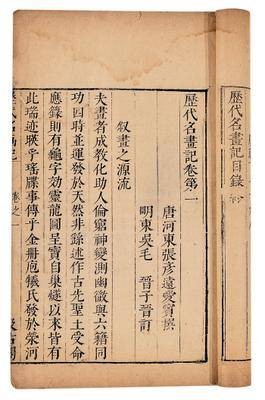 歷代名畫記目錄
歷代名畫記卷第一
唐河東張彥遠愛賓撰
明東吳毛晉子晉訂
叙畫之源流
夫畫者成教化助人倫窮神變測幽微與六籍同
功四時並運發於天然非繇述作古先聖王受命
應籙則有龜字效靈龍圖呈寶自巢燧以來皆有
此瑞迹暎乎瑤牒事傳乎金冊庖犧氏發於滎河
卷之一